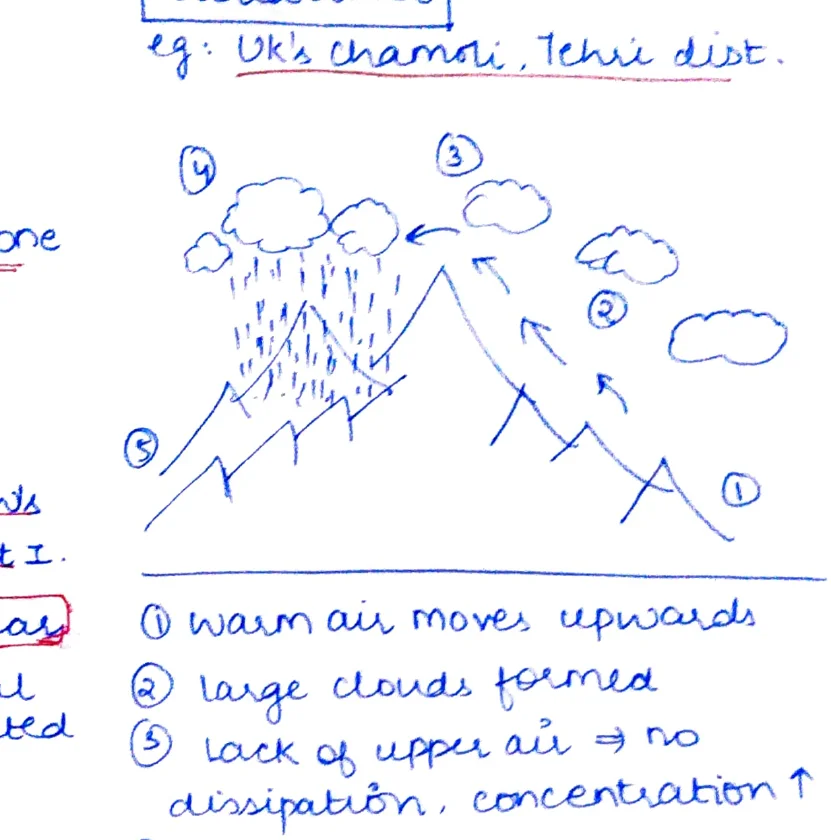 eg: UK's chamoli, Tehri dist.
④
③
one
②
⑤
①
t I.
① warm air moves upwards
② large clouds formed
③ Lack of upper air ⇒ no
dissipation, concentration ↑